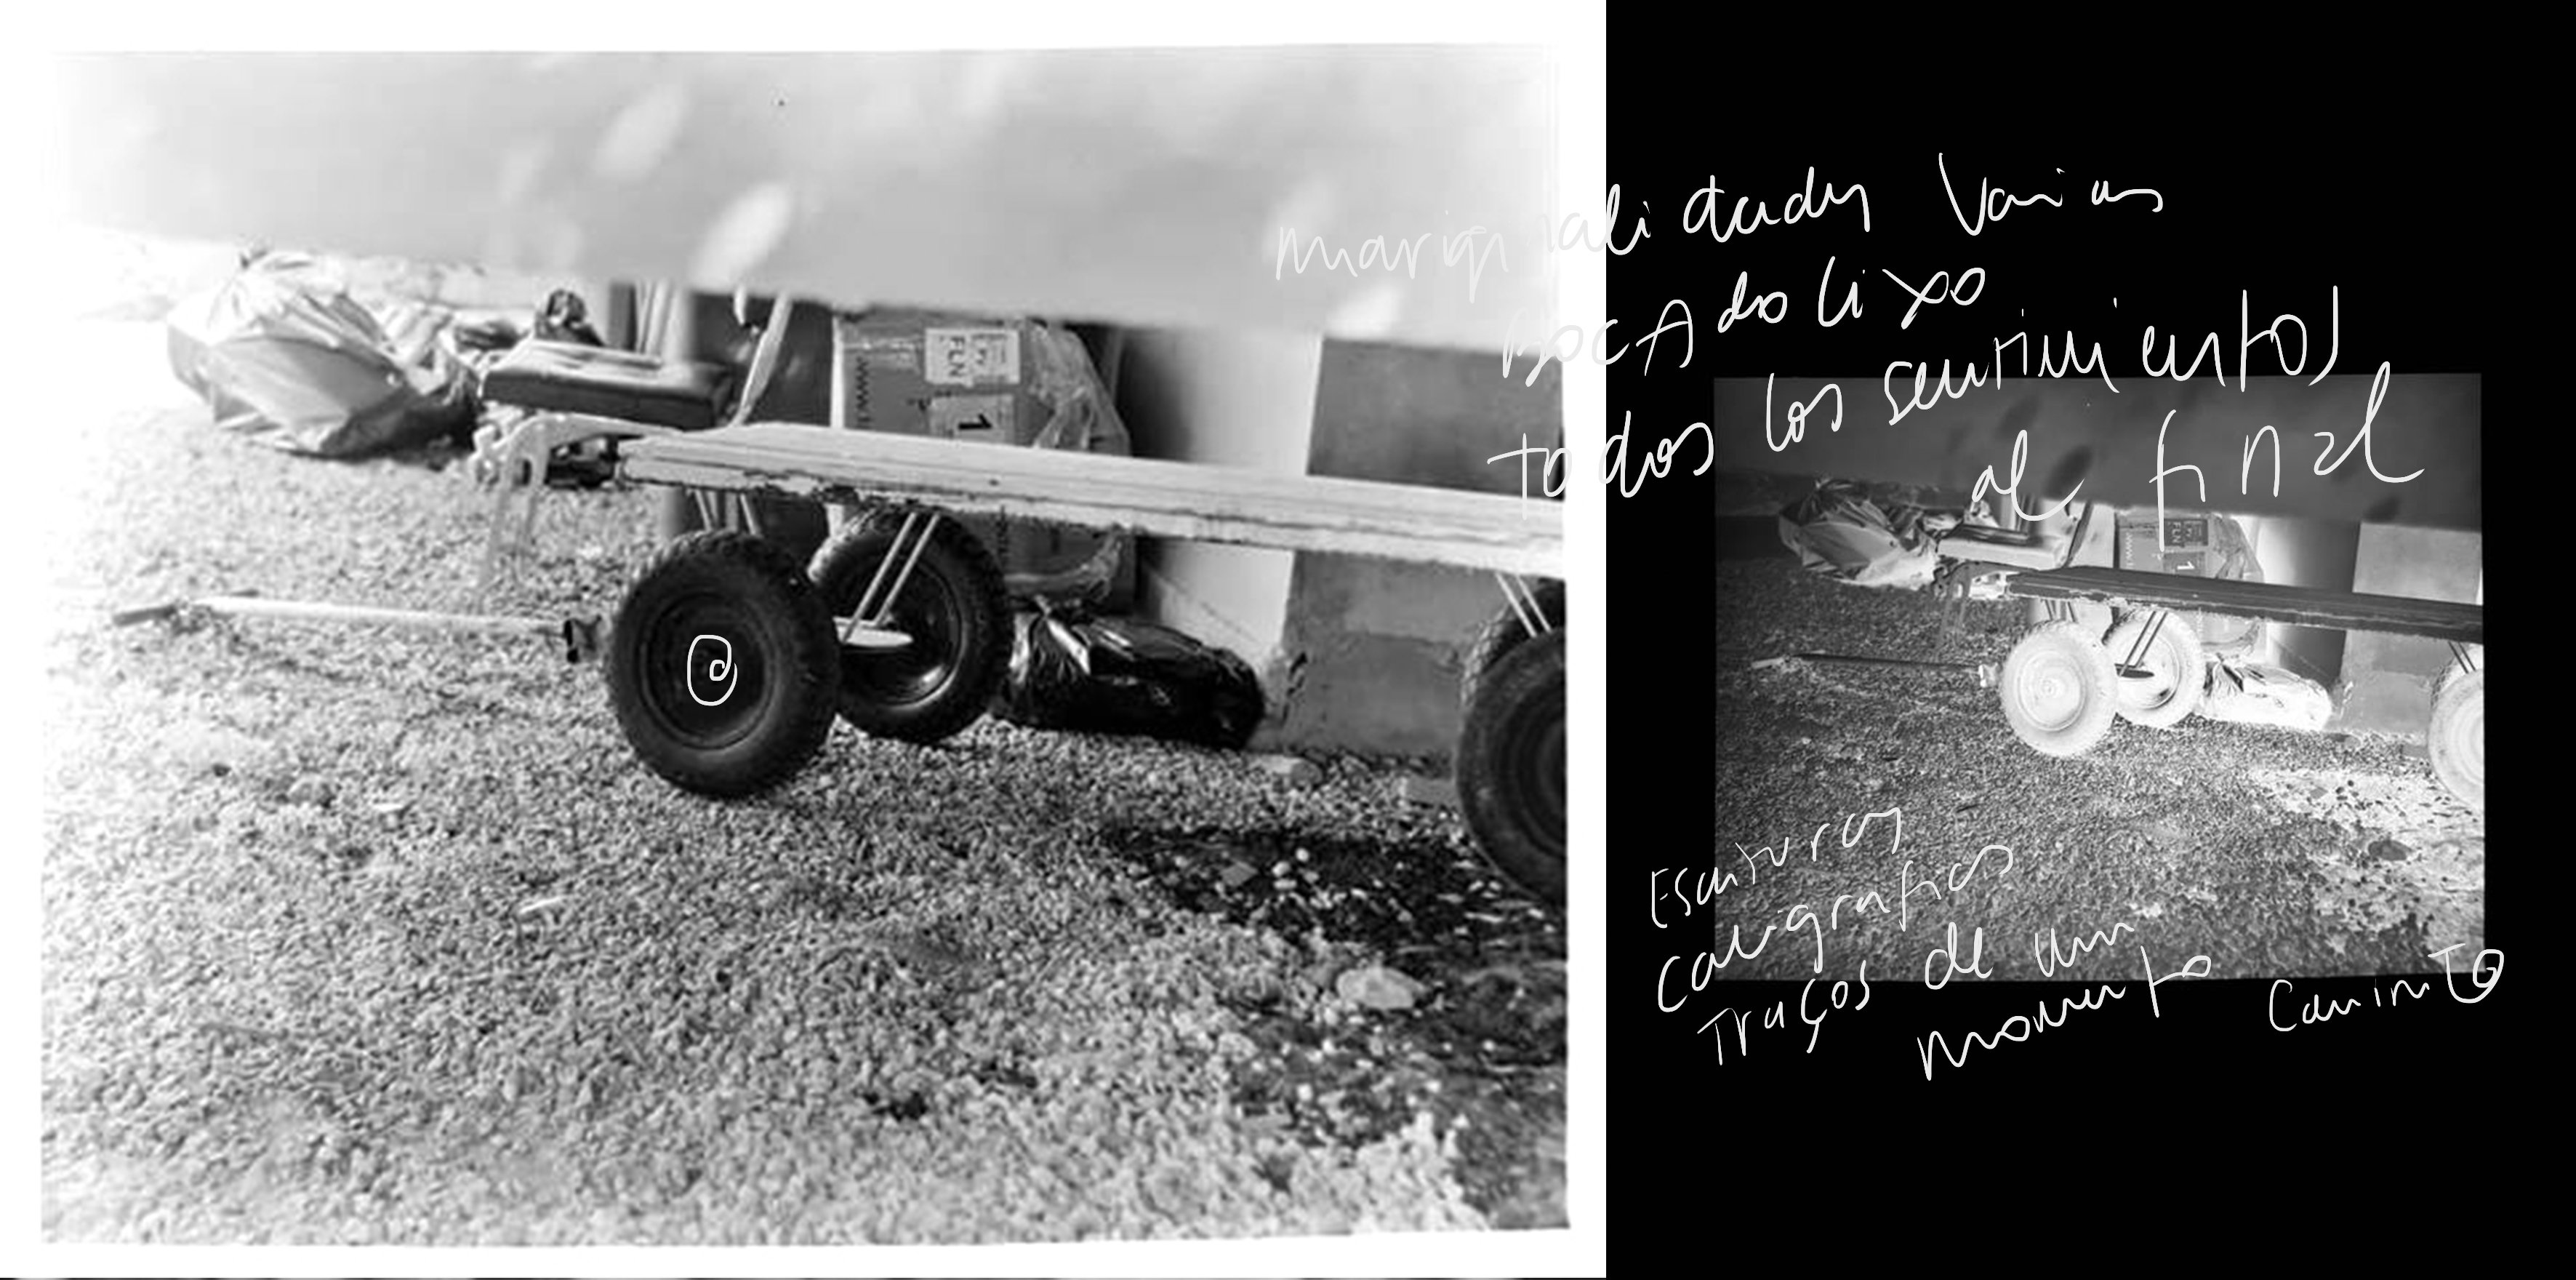 marginalidades varias
BOCA do lixo
todos los sentimientos
al final
FLN
1
www.
FLN
1
www.
Escrituras
caligraficas
Traços de um
momento
Caminito